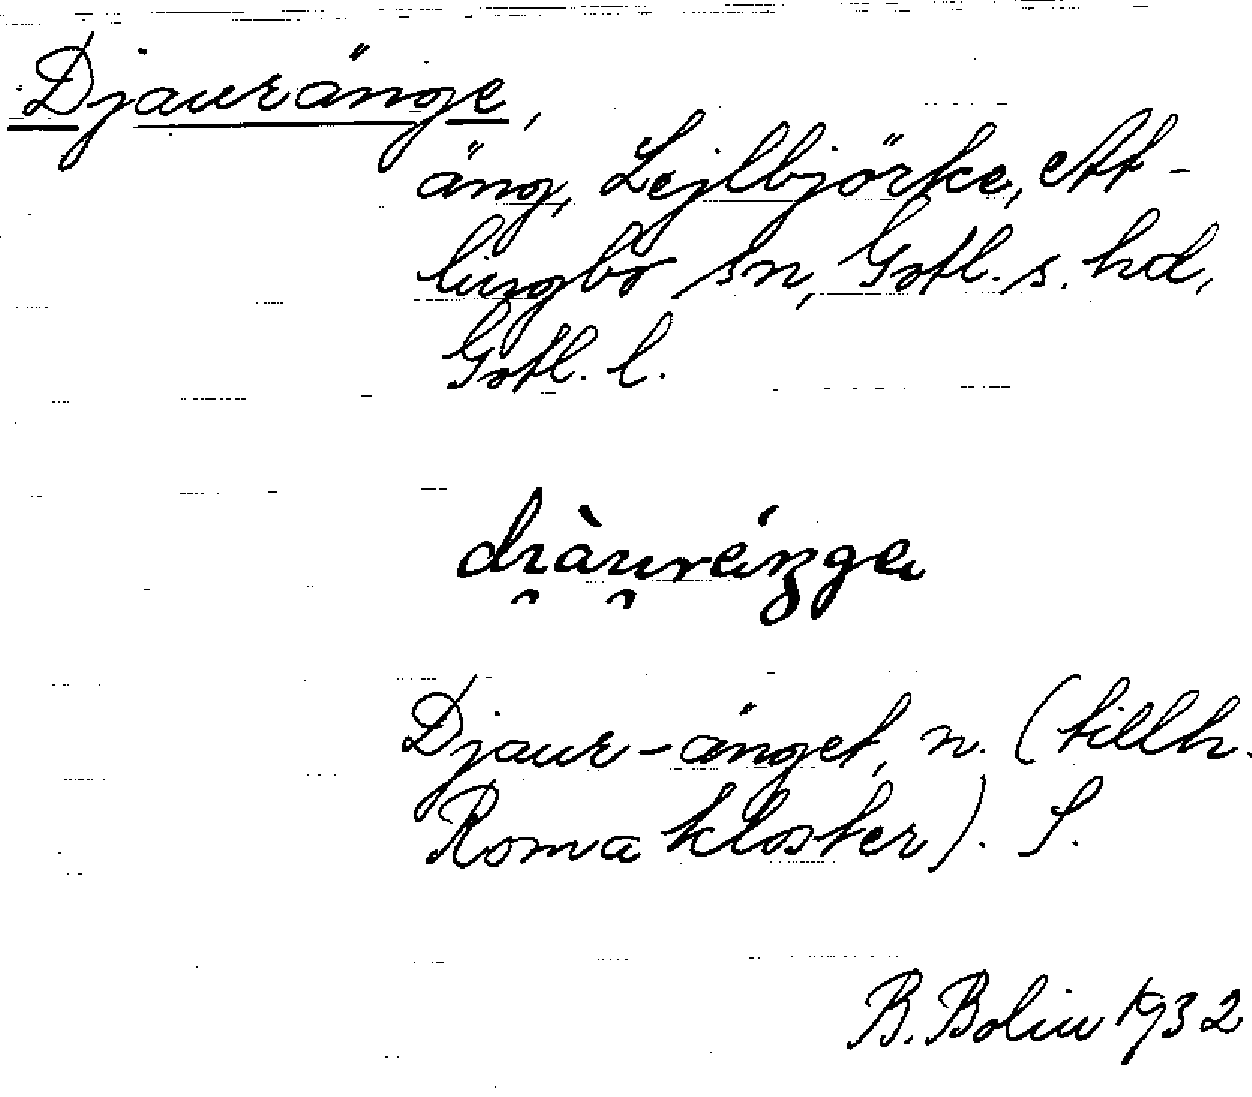 Djauränge,
äng, Lejlbjörke, Att-
lingbo sn, Gotl. s. hd,
Gotl. l.
Djaur-änget, n. (tillh.
Roma kloster). S.
B. Bolin 1932